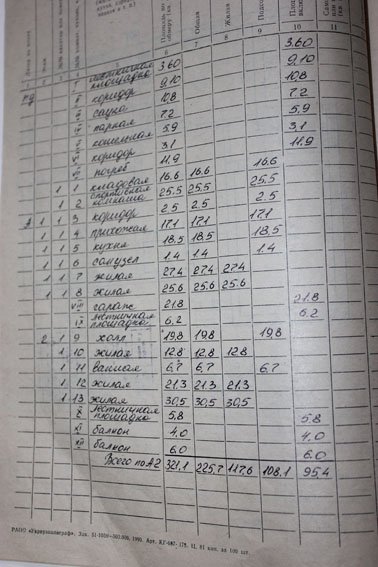 Площадь по
Общая
Жилая
6 7 8 9 10 11
лестничная площадка 3.60 3.60
коридор 9.10 9.10
сауна 10,8 10,8
парная 7.2 7.2
котельная 5.9 5.9
коридор 3.1 3.1
погреб 11.9 11.9
1 1 кладовая 16.6 16.6 16.6
1 2 спортивная комната 25.5 25.5 25.5
1 1 3 коридор 2.5 2.5 2.5
1 1 4 прихожая 17.1 17.1 17.1
1 1 5 кухня 18.5 18.5 18.5
1 1 6 санузел 1.4 1.4 1.4
1 1 7 жилая 27.4 27.4 27.4
1 1 8 жилая 25.6 25.6 25.6
VIII гараж 21.8 21.8
IX лестничная площадка 6.2 6.2
2 1 9 холл 19,8 19,8 19,8
1 10 жилая 12.8 12.8 12,8
1 11 ванная 6,7 6,7 6,7
1 12 жилая 21,3 21,3 21,3
1 13 жилая 30,5 30,5 30,5
X лестничная площадка 5.8 5.8
XI балкон 4.0 4.0
XII балкон 6.0 6.0
Всего по А2 321,1 225,7 117,6 108.1 95,4